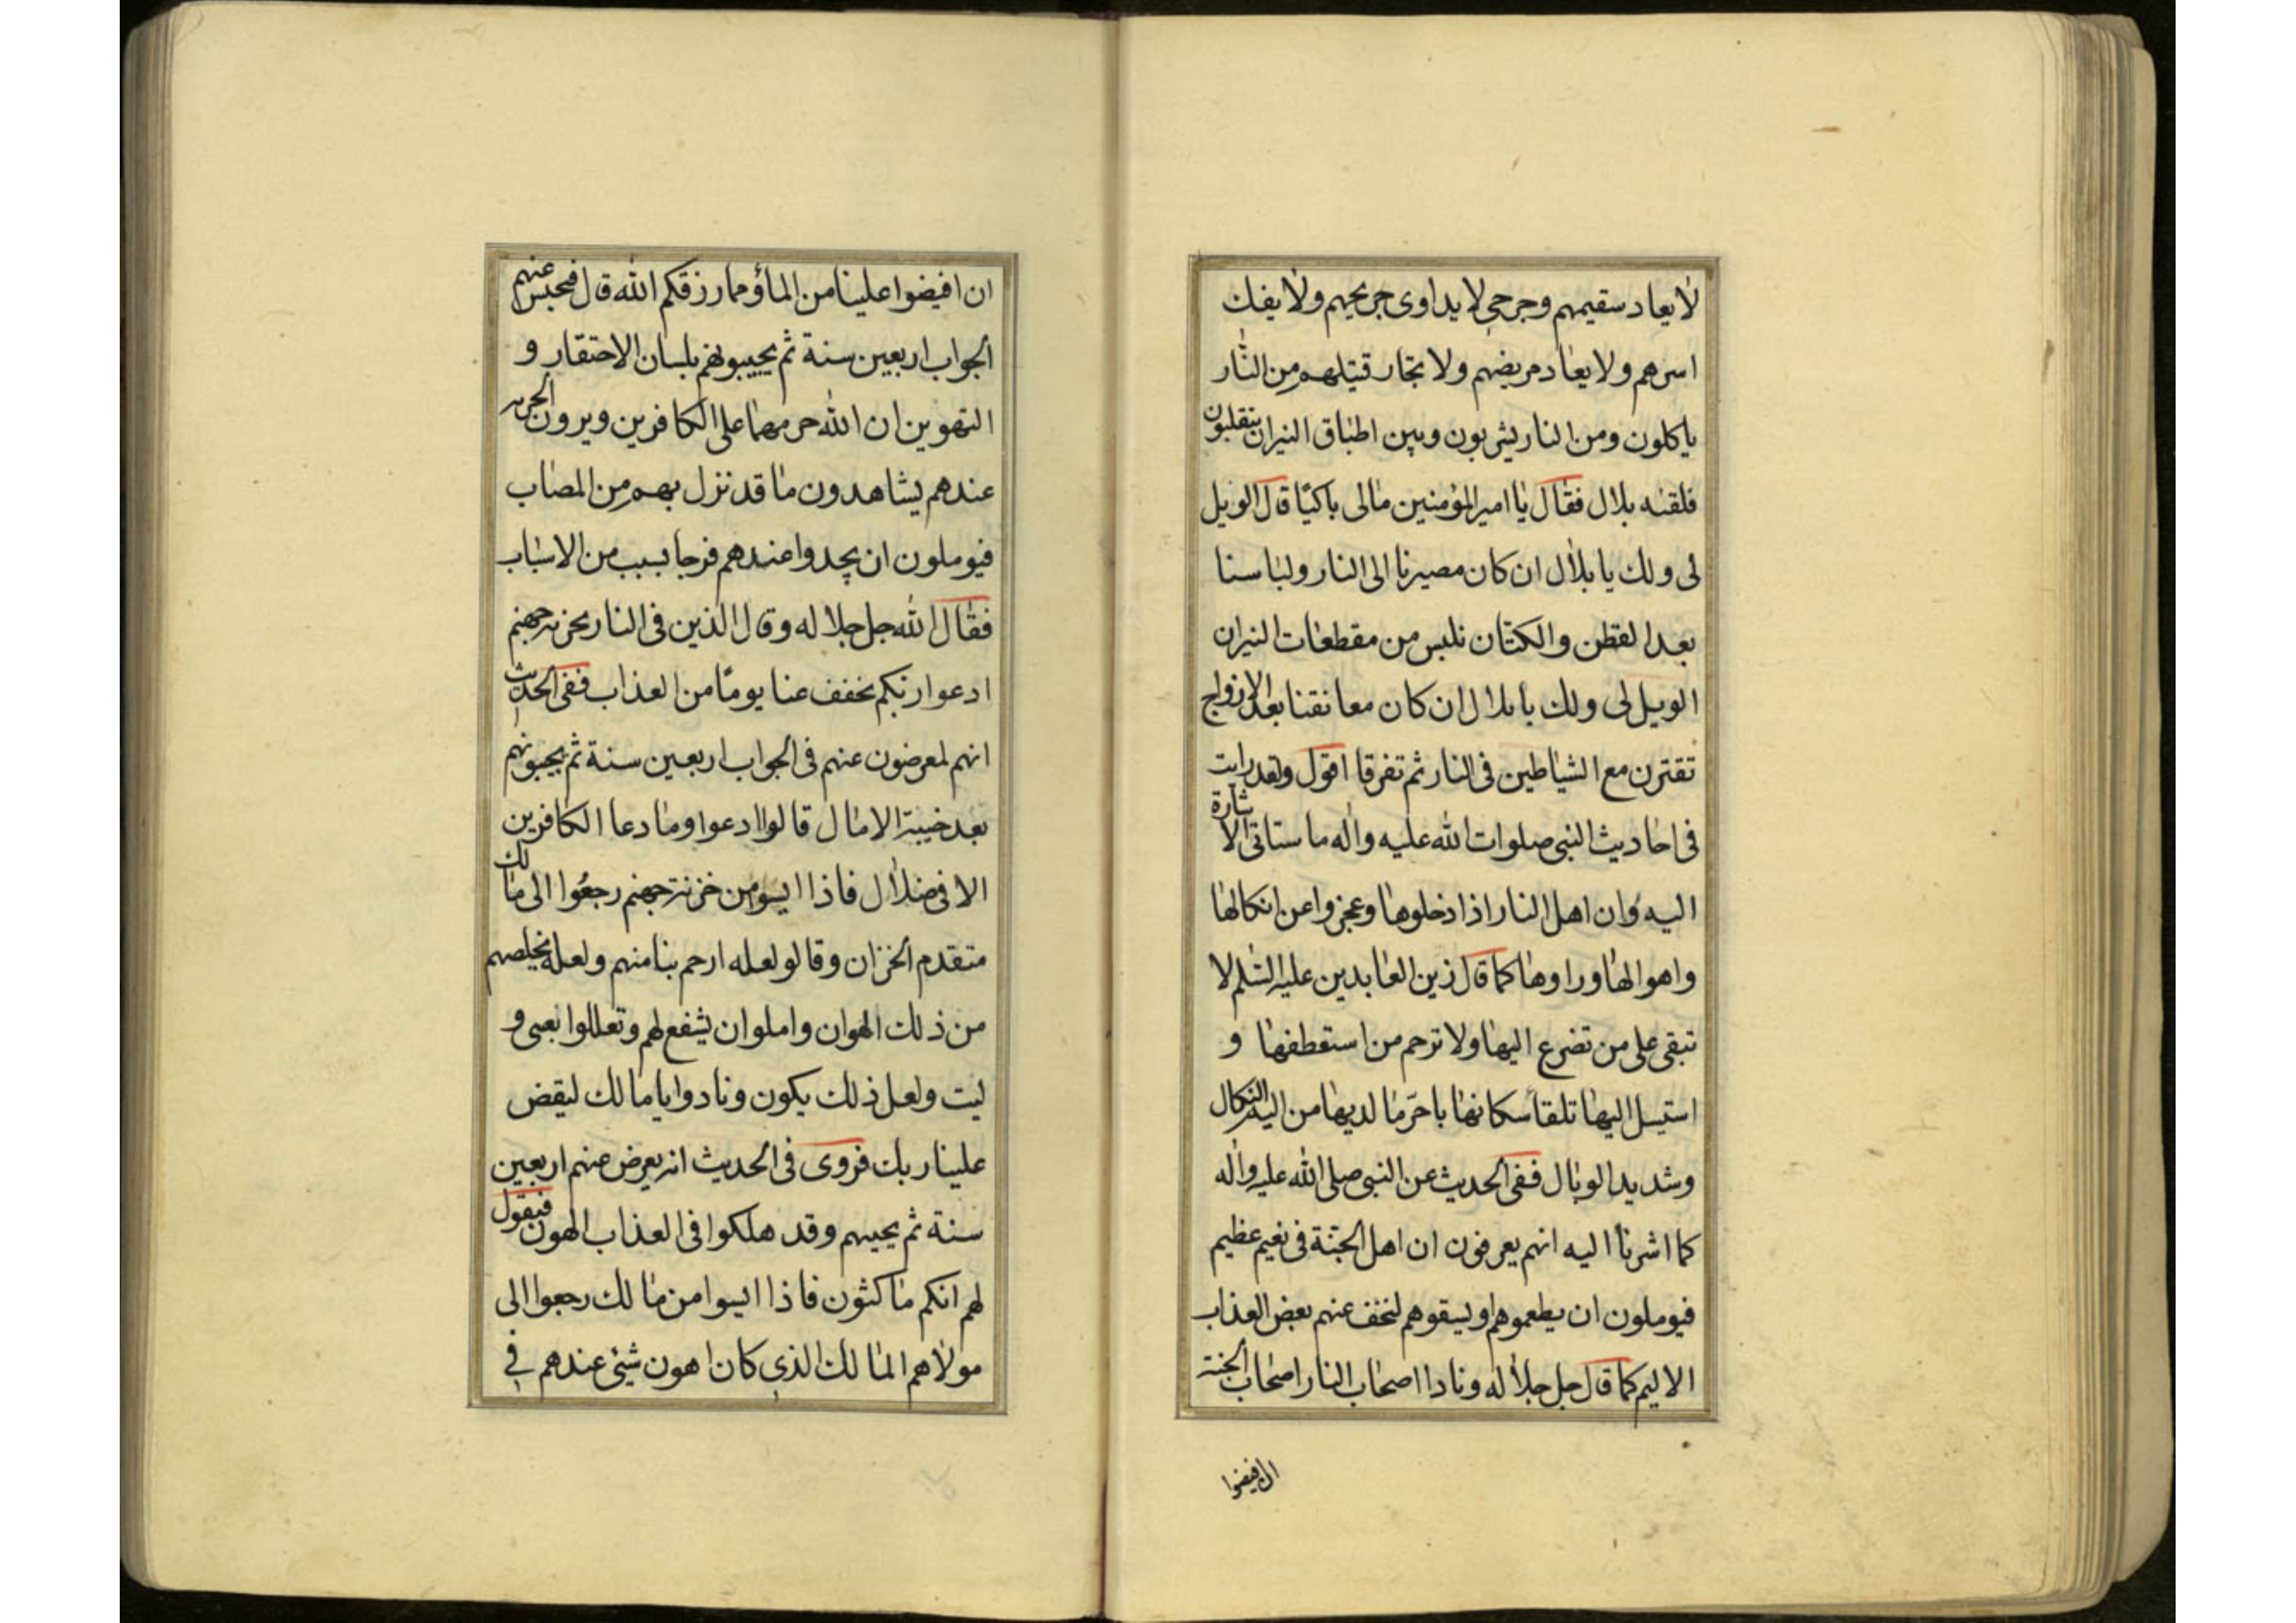 لا يعاد سقيمهم وجرحى لا يداوى جريحهم ولا يفك
اسرهم ولا يعاد مريضهم ولا تجار قتيلهم من النار
ياكلون ومن النار يشربون وبين اطباق النيران يتقلبون
فلقنه بلال فقال يا امير المؤمنين مالى باكيًا قال الويل
لى ولك يا بلال ان كان مصيرنا الى النار ولباسنا
بعد القطن والكتان نلبس من مقطعات النيران
الويل لى ولك يا بلال ان كان معانقنا بعد الازواج
تقترن مع الشياطين فى النار ثم تفرقا اقول ولقد رايت
فى احاديث النبى صلوات الله عليه واله ما ستاتى الاشارة
اليه وان اهل النار اذا دخلوها وعجزوا عن انكالها
واهوالها وراوها كما قال زين العابدين عليه السلم لا
تبقى على من تضرع اليها ولا ترحم من استعطفها و
استبسل اليها تلقا سكانها باحرّ ما لديها من اليم النكال
وشديد الوبال ففى الحديث عن النبى صلى الله عليه واله
كما اشرنا اليه انهم يعرفون ان اهل الجنّة فى نعيم عظيم
فيوملون ان يطعموهم او يسقوهم لنخف عنهم بعض العذاب
الاليم كما قال جل جلاله ونادا اصحاب النار اصحاب الجنة
ان افيضوا
ان افيضوا علينا من الماؤ مما رزقكم الله قال فيحبس عنهم
الجواب اربعين سنة ثم يجيبونهم بلسان الاحتقار و
التهوين ان الله حرمهما على الكافرين ويرون الخزنة
عندهم يشاهدون ما قد نزل بهم من المصاب
فيوملون ان يجدوا عندهم فرجا بسبب من الاسباب
فقال الله جل جلاله وقال الذين فى النار لخزنة جهنم
ادعوا ربكم يخفف عنا يومًا من العذاب ففى الحديث
انهم لمعرضون عنهم فى الجواب اربعين سنة ثم يجيبونهم
بعد خيبة الامال قالوا ادعوا وما دعا الكافرين
الا فى ضلال فاذا ايسوا من خزنة جهنم رجعوا الى مالك
متقدم الخزان وقالو لعله ارحم بنا منهم ولعله يخلصهم
من ذلك الهوان واملوا ان يشفع لهم وتعللوا بعسى و
ليت ولعل ذلك يكون ونادوا يا مالك ليقض
علينا ربك فروى فى الحديث انه يعرض عنهم اربعين
سنة ثم يجيبهم وقد هلكوا فى العذاب الهون فيقول
لهم انكم ماكثون فاذا ايسوا من مالك رجعوا الى
مولاهم المالك الذى كان اهون شيئ عندهم فى